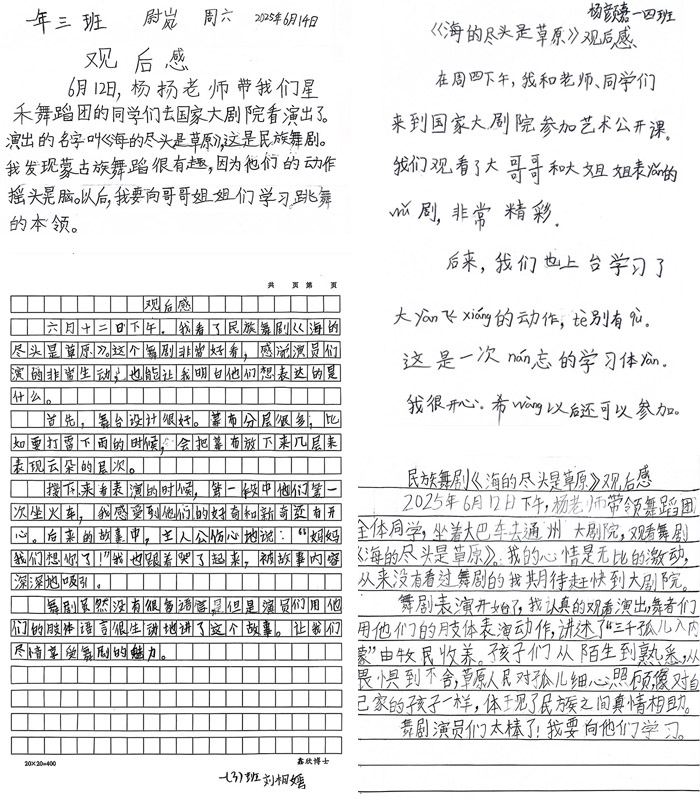 年三班 尉岚 周六 2025年6月14日
观后感
6月12日,杨扬老师带我们星
禾舞蹈团的同学们去国家大剧院看演出了。
演出的名字叫《海的尽头是草原》,这是民族舞剧。
我发现蒙古族舞蹈很有趣,因为他们的动作
摇头晃脑。以后,我要向哥哥姐姐们学习跳舞
的本领。
共 页 第 页
观后感
六月十二日下午,我看了民族舞剧《海的
尽头是草原》。这个舞剧非常好看,感觉演员们
演的非常生动,也能让我明白他们想表达的是
什么。
首先,舞台设计很好。幕布分层很多,比
如要打雷下雨的时候,会把幕布放下来几层来
表现云朵的层次。
接下来当表演的时候,第一段中他们第一
次坐火车,我感受到他们的好奇和新奇还有开
心。后来的故事中,主人公伤心地说:“妈妈
我们想你了!”我也跟着哭了起来,被故事内容
深深地吸引。
舞剧虽然没有很多语言,但是演员们用他
们的肢体语言很生动地讲了这个故事。让我们
尽情享受舞剧的魅力。
20×20=400 鑫欣博士
一(3)班 刘桐嬉
杨颜嘉一四班
《海的尽头是草原》观后感
在周四下午,我和老师、同学们
来到国家大剧院参加艺术公开课。
我们观看了大哥哥和大姐姐表yǎn的
wǔ剧,非常精彩。
后来,我们也上台学习了
大yàn飞xiáng的动作,tè别有qù。
这是一次nán忘的学习体yàn。
我很开心。希wàng以后还可以参加。
民族舞剧《海的尽头是草原》观后感
2025年6月12日下午,杨老师带领舞蹈团
全体同学,坐着大巴车去通州大剧院,观看舞剧
《海的尽头是草原》。我的心情是无比的激动,
从来没有看过舞剧的我期待赶快到大剧院。
舞剧表演开始了,我认真的观看演出,舞者们
用他们的肢体表演动作,讲述了“三千孤儿入内
蒙”由牧民收养。孩子们从陌生到熟悉,从
畏惧到不舍,草原人民对孤儿细心照顾,像对自
己家的孩子一样,体现了民族之间真情相助。
舞剧演员们太棒了!我要向他们学习。